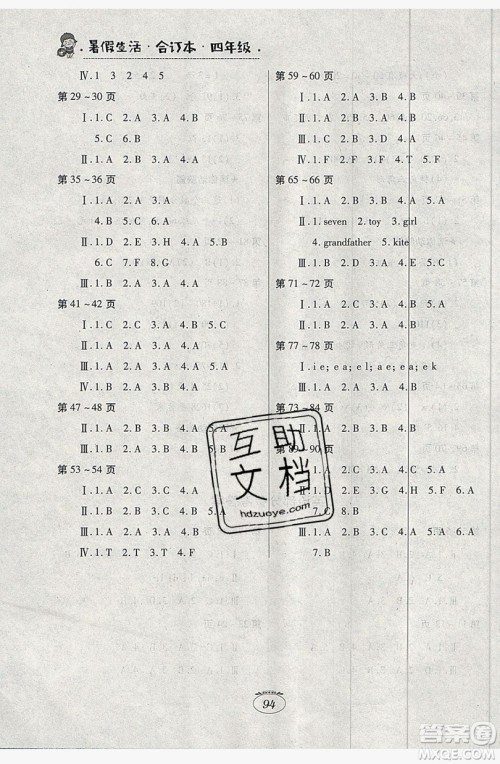 暑假生活·合订本·四年级
Ⅳ.1 3 2 4 5
第29~30页
Ⅰ.1.C 2.A 3.A 4.B
5.C 6.B
Ⅱ.1.A 2.B 3.A 4.B
第35~36页
Ⅰ.1.A 2.B 3.A
4.B 5.C 6.A
Ⅱ.1.B 2.A 3.A 4.A 5.B
6.C 7.F 8.G
Ⅲ.1.B 2.A 3.A 4.B
第41~42页
Ⅰ.1.C 2.A 3.A 4.B 5.C
Ⅱ.1.B 2.A 3.A 4.B 5.A
Ⅲ.1.A 2.B 3.A 4.B 5.A
Ⅳ.1.A 2.B 3.A 4.B
第47~48页
Ⅰ.1.B 2.A 3.A 4.B 5.A
Ⅱ.1.A 2.B 3.A 4.B
第53~54页
Ⅰ.1.A 2.B 3.A
Ⅱ.1.B 2.A 3.A 4.B
Ⅲ.1.A 2.B 3.A 4.B
Ⅳ.1.T 2.T 3.T 4.F
第59~60页
Ⅰ.1.A 2.B 3.A 4.B
Ⅱ.1.A 2.B 3.A 4.B
Ⅲ.1.A 2.B 3.A 4.B
Ⅳ.1.F 2.T 3.T 4.F
第65~66页
Ⅰ.1.B 2.A 3.A 4.B
Ⅱ.1.seven 2.toy 3.girl
4.grandfather 5.kite
Ⅲ.1.B 2.D 3.E 4.A 5.C
第71~72页
Ⅰ.1.B 2.A 3.A 4.B
Ⅱ.1.B 2.C 3.A 4.A 5.A
第77~78页
Ⅰ.ie; ea; el; ae; ea; ek
Ⅱ.1.A 2.B 3.A 4.B 5.A
第73~84页
Ⅰ.1.B 2.A 3.A 4.B
第89~90页
Ⅰ.1.A 2.B 3.A 4.B
Ⅱ.1.A 2.B 3.D 4.E 5.F 6.A
7.C 8.B
Ⅲ.1.A 2.B 3.A 4.B 5.A 6.A
7.B
互助
文档
hdzuoye.com
94
答案圈
MXQE.COM